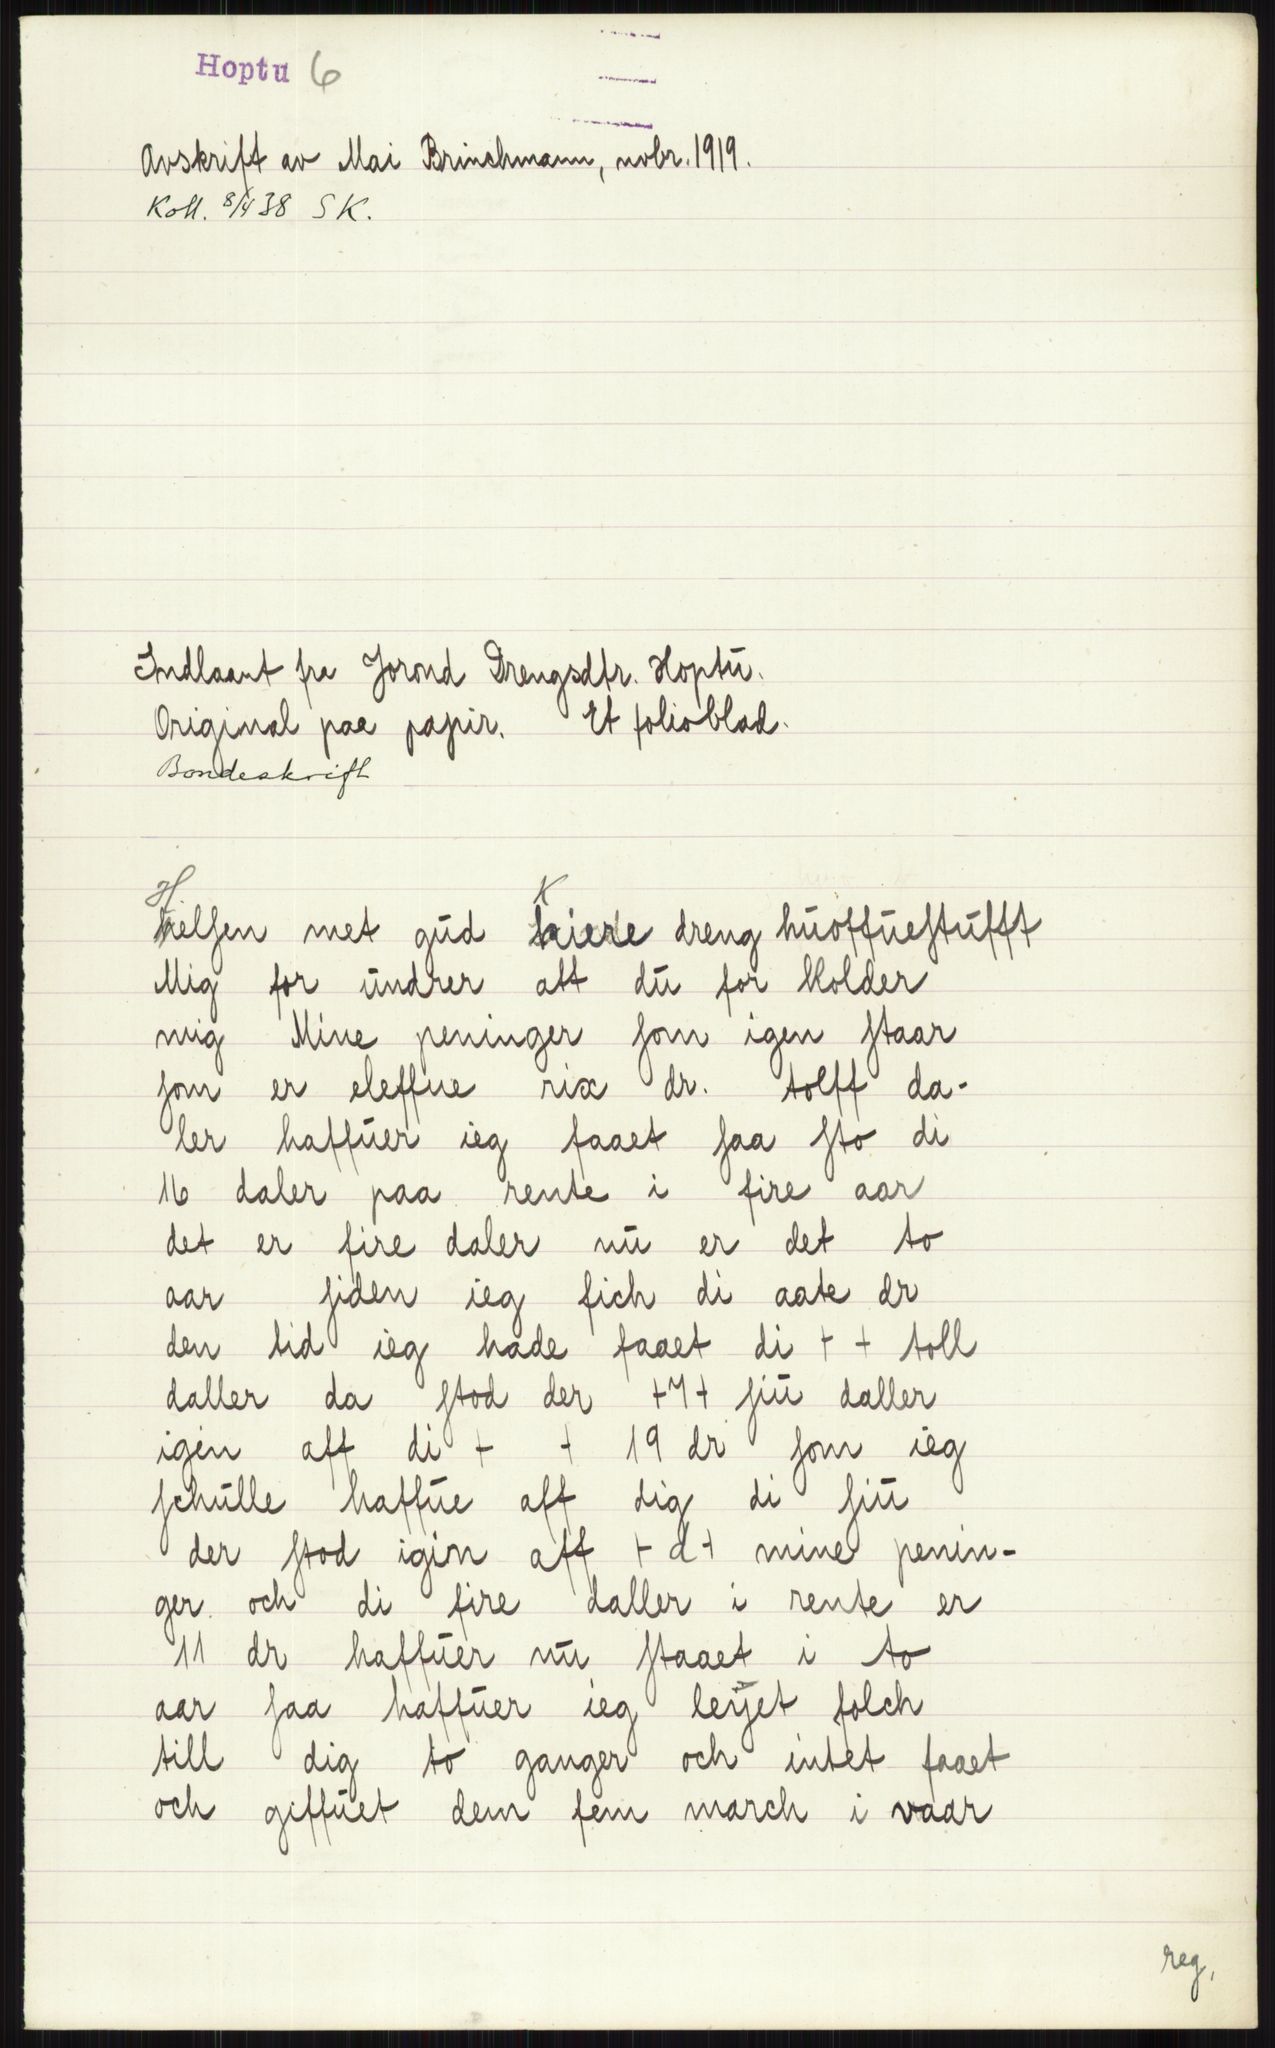 Hoptu 6
Avskrift av Mai Brinchmann, nvbr. 1919.
Koll. 8/4 38 SK.
Indlaant fra Jorond Drengsdtr. Hoptu.
Original paa papir. Et folioblad.
Bondeskrift
Helsen met gud Kiere dreng huoffuestufft
Mig for undrer att du for Holder
mig Mine peninger som igen staar
som er eleffue rix dr. tolff da-
ler haffuer ieg faaet saa sto di
16 daler paa rente i fire aar
det er fire daler nu er det to
aar siden ieg fich di aate dr
den tid ieg hade faaet di + + toll
daller da stod der +7+ siu daller
igin aff di + + 19 dr som ieg
schulle haffue aff dig di siu
der stod igin aff + d + mine penin-
ger och di fire daller i rente er
11 dr haffuer nu staaet i to
aar saa haffuer ieg leÿet folch
till dig to ganger och intet faaet
och giffuet dem fem march i vaar
reg.